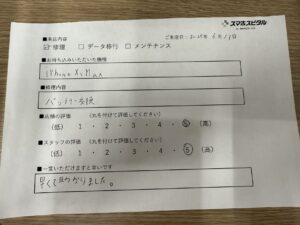 スマホスピタル
■来店内容
ご来店日: 2025年 6月19日
☑修理 □データ移行 □メンテナンス
■お持ち込みいただいた機種
iPhone XS Max
■修理内容
バッテリー交換
■店舗の評価 (丸を付けて評価してください)
(低) 1 ・ 2 ・ 3 ・ 4 ・ 5 (高)
■スタッフの評価 (丸を付けて評価してください)
(低) 1 ・ 2 ・ 3 ・ 4 ・ 5 (高)
■一言いただけますと幸いです
早くて助かりました。